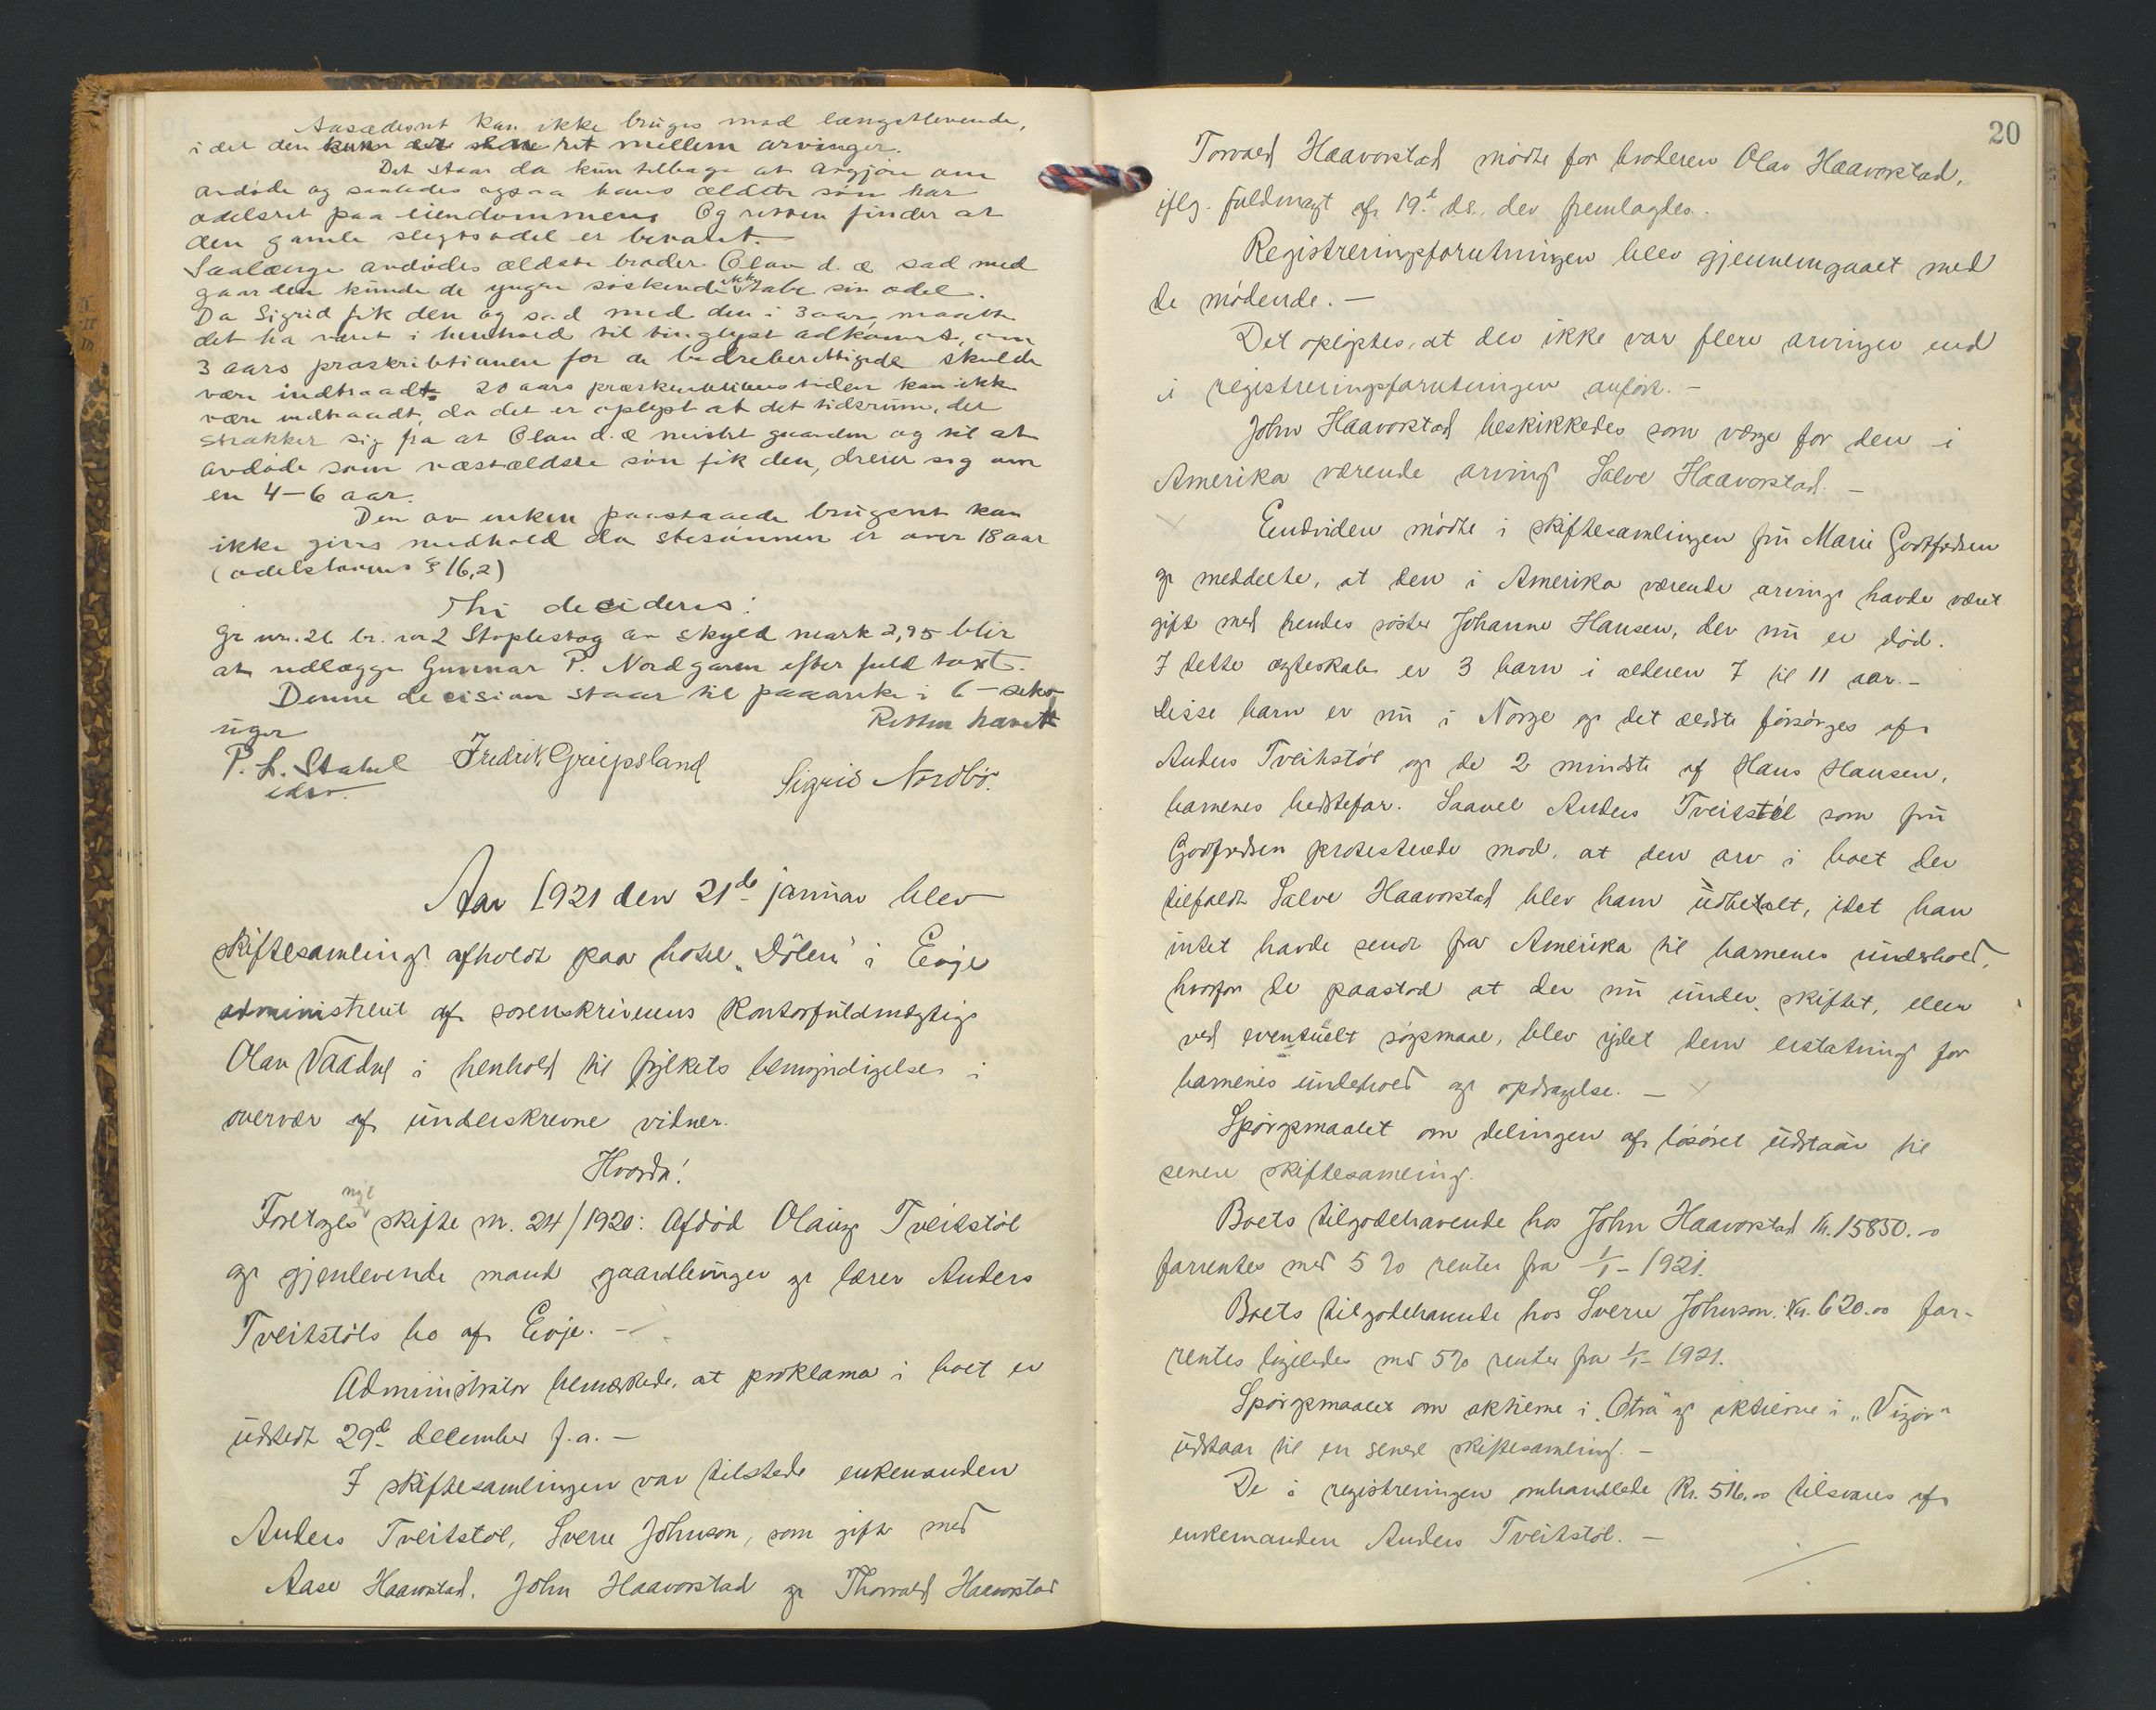 Aasædesret kan ikke bruges mod længstlevende,
i det den kun er ret mellem arvinger.
Det staar da kun tilbage at avgjøre om
avdøde og saaledes ogsaa hans ældste søn har
odelsret paa eiendommen. Og retten finder at
den gamle slegtsodel er bevaret.
Saalænge avdødes ældste broder Olav d. æ sad med
gaarden kunde de yngre søskende ikke tabe sin odel.
Da Sigrid fik den og sad med den i 3 aar, maatte
det ha været i henhold til tinglyst adkomst, om
3 aars præskribtionen for de bedreberettigede skulde
være indtraadt. 20 aars præskribtionstiden kan ikke
være indtraadt, da det er oplyst at det tidsrum, det
strækker sig fra at Olav d. æ mistet gaarden og til at
avdøde som næstældste søn fik den, dreier sig om
en 4-6 aar.
Den av enken paastaaede brugsret kan
ikke gives medhold da stesønnen er over 18 aar
(odelslovens § 16,2)
Thi decideres:
Gr nr. 26 br. nr 2 Stoplestog av skyld mark 2,95 blir
at udlægge Gunnar P. Nordgaren efter fuld taxt.
Denne decision staar til paaanke i 6 - seks
uger
Retten hævet
P. L. Stabel
edsv.
Fredrik Greipsland
Sigrid Nordbø.
Aar 1921 den 21de januar blev
skiftesamling afholdt paa hotel "Dølen" i Evje
administreret af sorenskriverens kontorfuldmægtig
Olav Vaadel i henhold til fylkets bemyndigelse i
overvær af underskrevne vidner.
Hvorda!
Foretoges nyt skifte nr. 24/1920: Afdød Olaug Tveitstøl
og gjenlevende mand gaardbruger og lærer Anders
Tveitstøls bo af Evje. -
Administrator bemærkede, at proklama i boet er
udstedt 29de december f.a. -
I skiftesamlingen var tilstede enkemanden
Anders Tveitstøl, Sverre Johnson, som gift med
Aase Haavorstad, John Haavorstad og Thorvald Haavorstad
20
Torvald Haavorstad mødte for broderen Olav Haavorstad,
iflg. fuldmagt af 19.d ds., der fremlagdes.
Registreringsforretningen blev gjennemgaaet med
de mødende. -
Det oplystes, at der ikke var flere arvinger end
i registreringsforretningen anført. -
John Haavorstad beskikkedes som værge for den i
Amerika værende arving Salve Haavorstad. -
Endvidere mødte i skiftesamlingen fru Marie Godtfredsen
og meddelte, at den i Amerika værende arving havde været
gift med hendes søster Johanne Hansen, der nu er død.
I dette ægteskab er 3 barn i alderen 7 til 11 aar. -
Disse barn er nu i Norge og det ældste forsørges af
Anders Tveitstøl og de 2 mindste af Hans Hansen,
barnenes bedstefar. Saavel Anders Tveitstøl som fru
Godfredsen protesterede mod, at den arv i boet der
tilfaldt Salve Haavorstad blev ham udbetalt, idet han
intet havde sendt fra Amerika til barnenes underhold,
hvorfor de paastod at der nu under skiftet, eller
ved eventuelt søgsmaal, blev ydet dem erstatning for
barnenes underhold og opdragelse. -
Spørgsmaalet om delingen af løsøret udstaar til
senere skiftesamling.
Boets tilgodehavende hos John Haavorstad Kr. 15850.-
forrentes med 5 % renter fra 1/1 - 1921.
Boets tilgodehavende hos Sverre Johnson: Kr. 620.00 for-
rentes ligeledes med 5% renter fra 1/1 - 1921.
Spørgsmaalet om aktierne i "Otra" og aktierne i "Vigør"
udstaar til en senere skiftesamling. -
De i registreringen omhandlede Kr. 516.00 tilsvares af
enkemanden Anders Tveitstøl. -